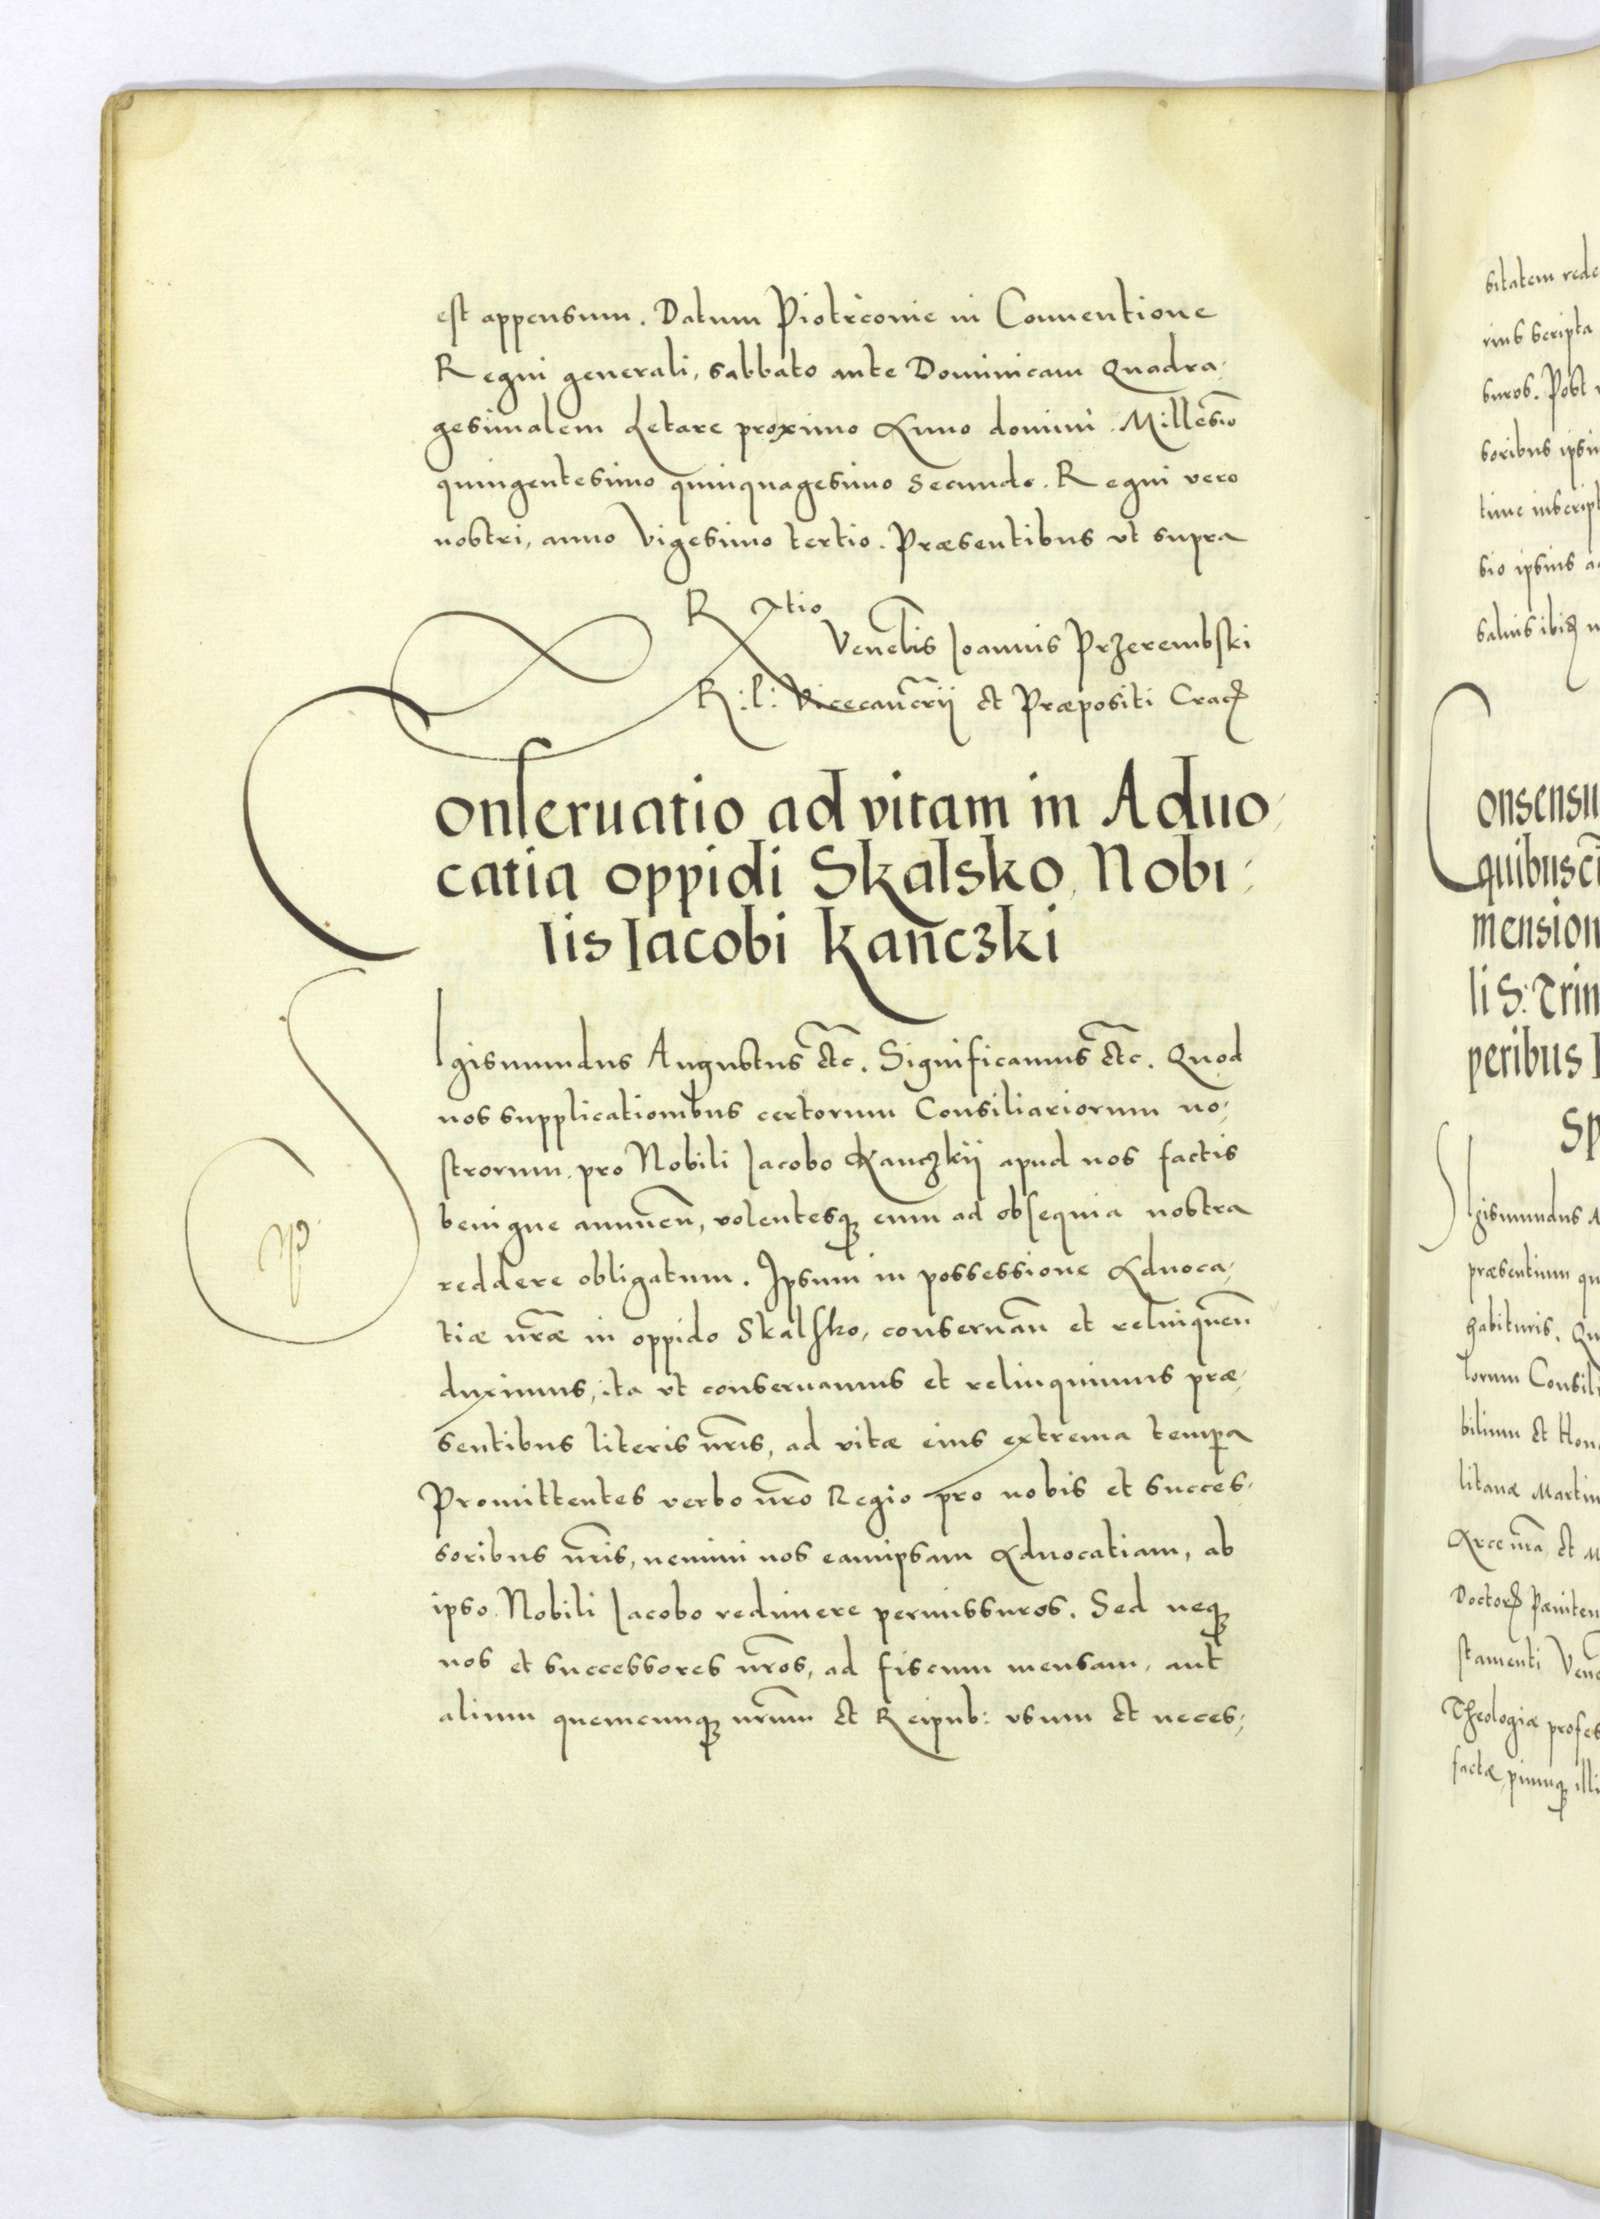 est appensum. Datum Piotrconie in Conuentione
Regni generali, sabbato ante Dominicam Quadra-
gesimalem Letare proximo Anno domini Millesīo
quingentesimo quinquagesimo secundo. Regni vero
nostri, anno Vigesimo tertio. Præsentibus vt supra
R tio
Venelis Ioannis Przerembski
R: P: Vicecancrii et Præpositi Crac
Conseruatio ad vitam in Aduo-
catia oppidi Skalsko, Nobi-
lis Iacobi Kanczki
Sigismundus Augustus etc. Significamus etc. Quod
nos supplicationibus certorum Consiliariorum no-
strorum pro Nobili Iacobo Kanczkii apud nos factis
benigne annuen, volentesq eum ad obsequia nostra
reddere obligatum. Ipsum in possessione Aduoca-
tiæ nræ in oppido Skalsko, conseruan et relinquen
duximus, ita vt conseruamus et relinquimus præ-
sentibus literis nris, ad vitæ eius extrema tempa
Promittentes verbo nro Regio pro nobis et succes-
soribus nris, nemini nos eamipsam Aduocatiam, ab
ipso Nobili Iacobo redimere permissuros. Sed neq
nos et successores nros, ad fiscum mensam, aut
alium quemcunq nrum et Reipub: vsum et neces-
sitatem rede
rius scripta
suros. Post
soribus ipsi
tunc inscript
sio ipsius a
saluis ibi
Consensu
quibusc
mension
li S: Trin
peribus
Sp
Sigismundus A
præsentium qu
habituris. Qu
torum Consili
bilium et Hon
litanæ Martin
et
Doctor Pæniten
stamenti Vene
Theologiæ profes
factæ, piumq illi